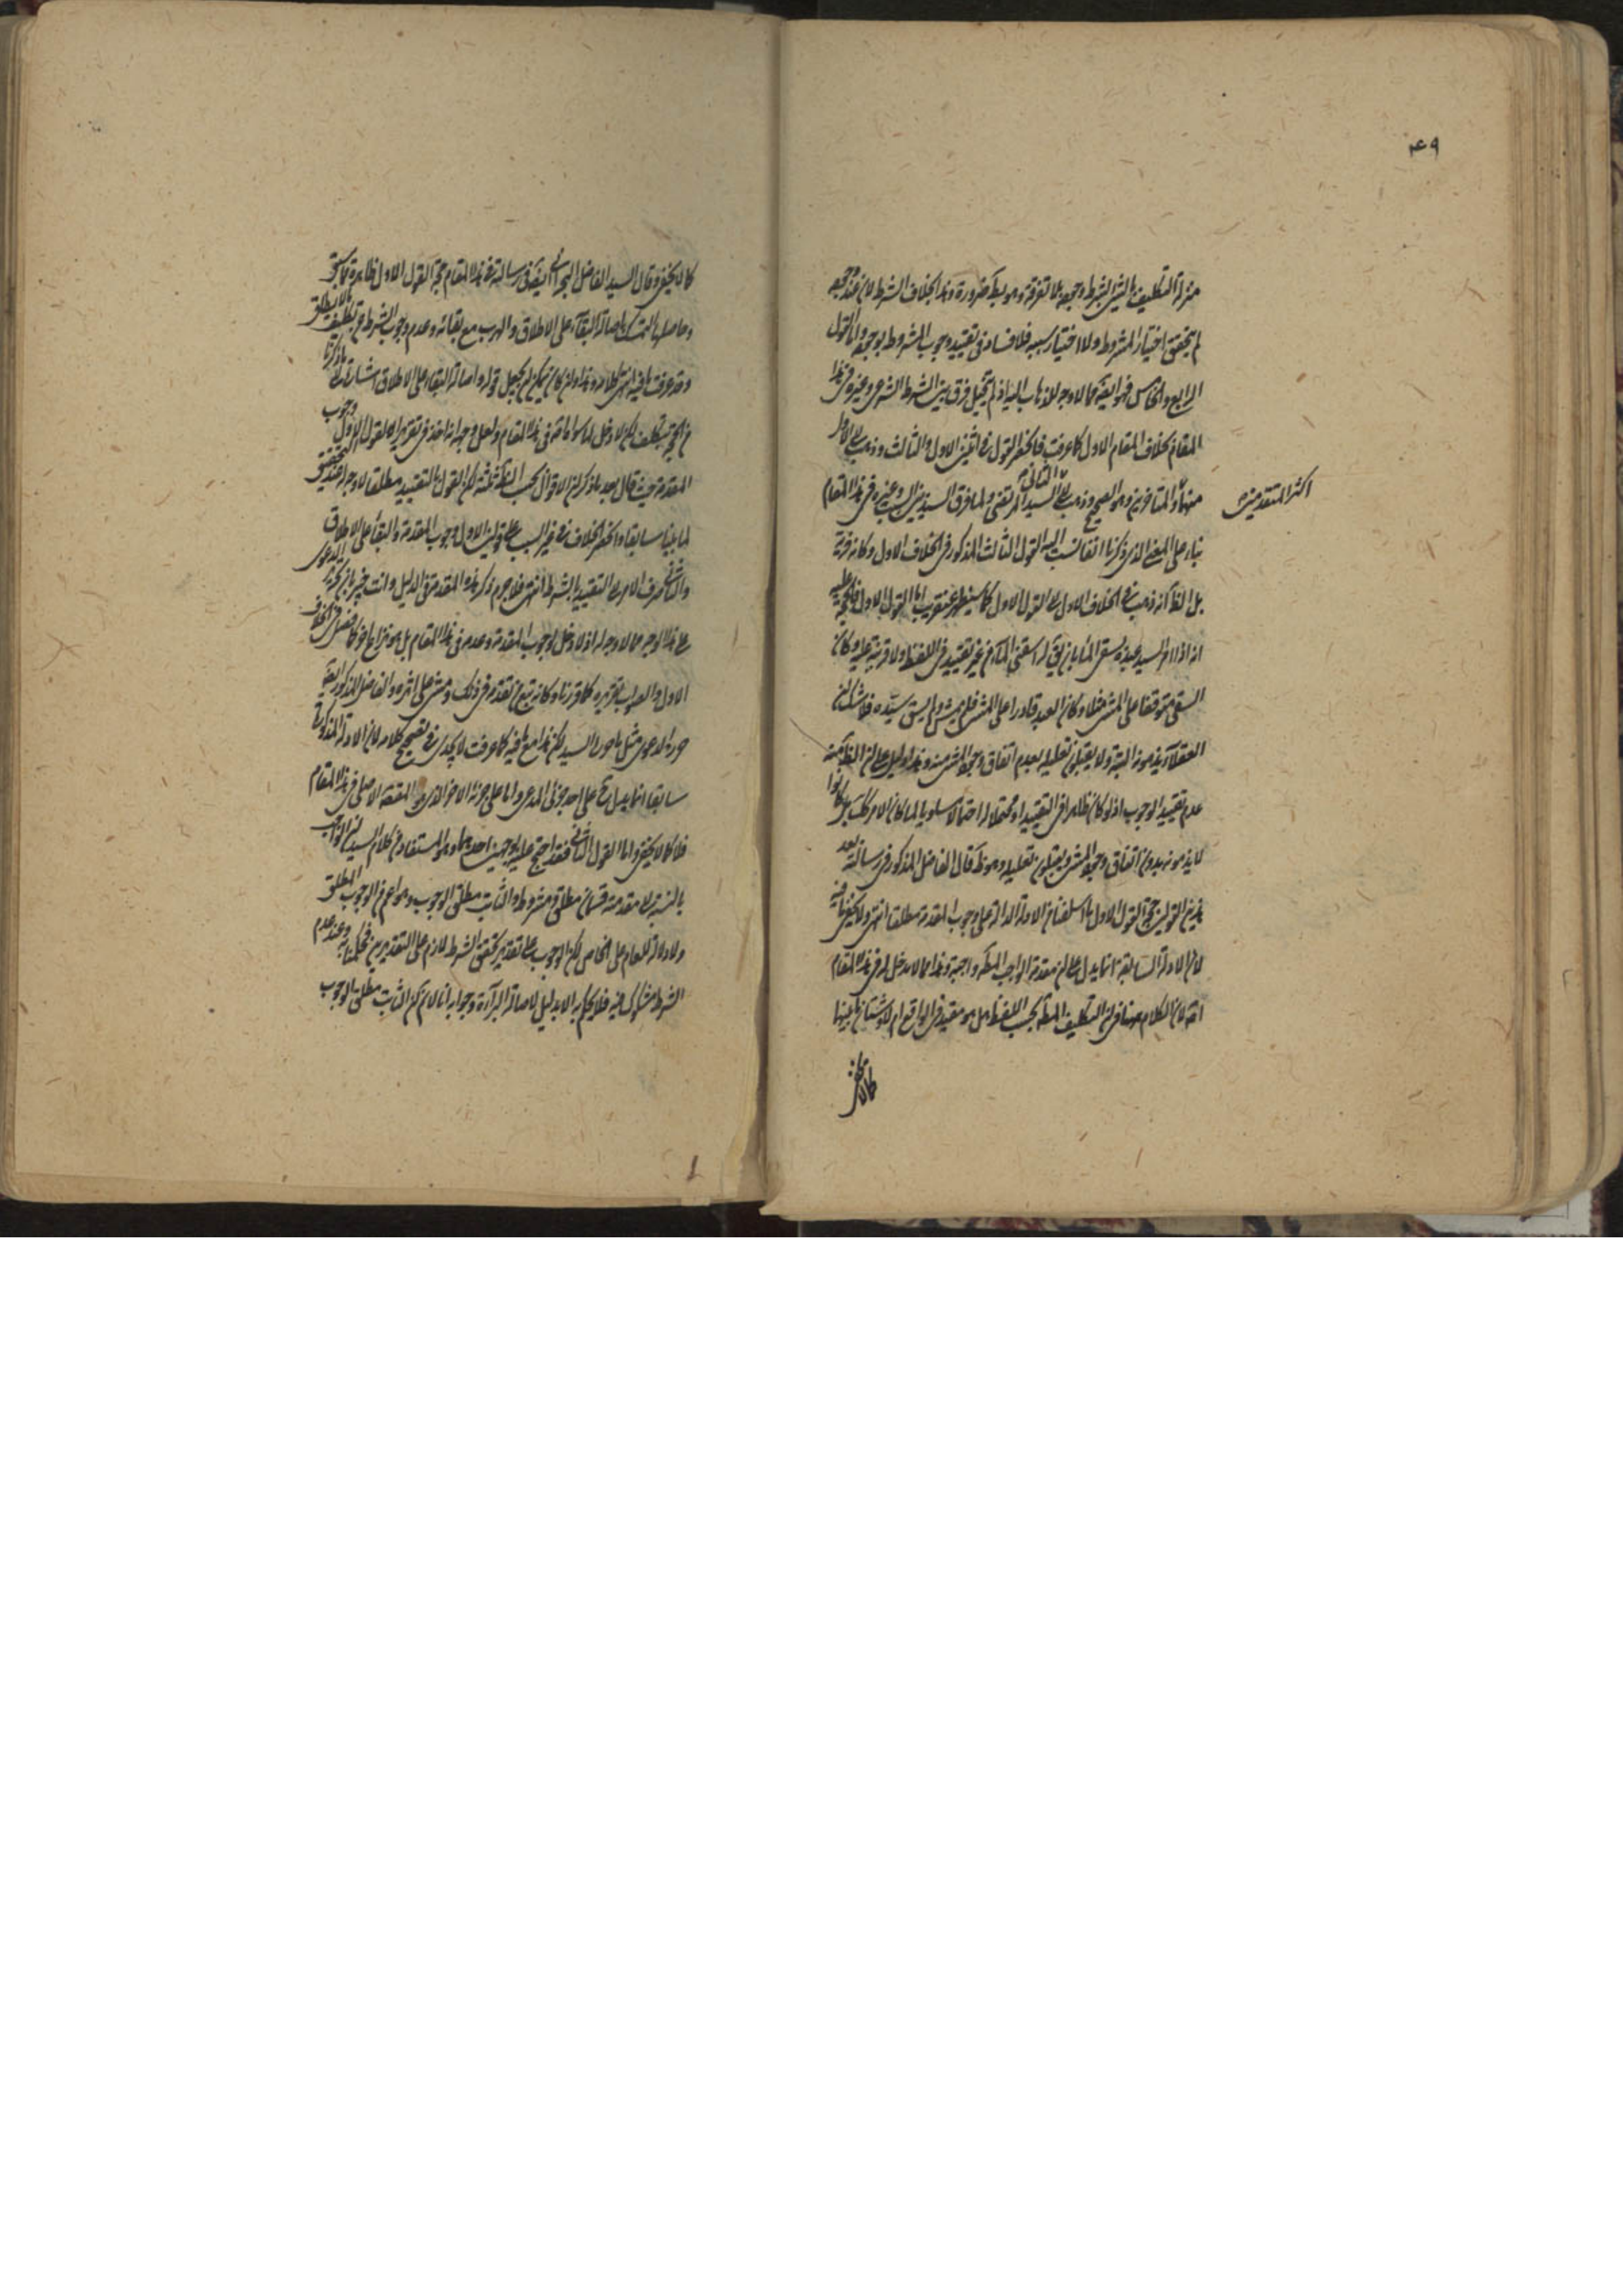 ۴۹
منزلة التكليف بالشيء بشرط وجوبه بلا تفرقة وهو بط ضرورة وهذا بخلاف الشرط لان عند وجوبه
لم يتحقق اختيار المشروط ولا اختيار سببه فلا فساد في تقييد وجوب المشروط بوجوبه واما القول
الرابع والخامس فهو ايضا مما لا وجه للذهاب اليه اذ لم يتخيل فرق بين الشرط الشرعي وغيره في هذا
المقام بخلاف المقام الاول كما عرفت فانحصر القول في اثنين الاول والثالث وذهب الى الاول
اكثر المتقدمين
منهما والمتأخرين وهو الصحيح وذهب الى الثاني السيد المرتضى ولما فرق السيد بين السبب وغيره في هذا المقام
بناء على المعنى الذي ذكرنا انفا نسب اليه القول الثالث المذكور في الخلاف الاول وكانه فرية
بل الظ انه ذهب في الخلاف الاول الى القول الاول كما سيظهر عنقريب اما القول الاول فالحجة عليه
انه اذا امر السيد عبده بسقي الماء بان يق له اسقني الماء من غير تقييد في اللفظ ولا قرينة عليه وكان
السقي متوقفا على المشي مثلا وكان العبد قادرا على المشي فلم يمش ولم يسق سيده فلا شك ان
العقلاء يذمونه البتة ولا يقبلون تعليله بعدم اتفاق وجود المشي منه وهذا دليل على ان الظ منه
عدم تقييد الوجوب اذ لو كان ظاهرا في التقييد او محتملا له احتمالا مساويا لما كان الامر كك بل كانوا
لا يذمونه بدون اتفاق وجود المشي ويقبلون تعليله وهو ظ قال الفاضل المذكور في رسالته بعد
هذين القولين حجة القول الاول ما اسلفناه من الادلة الدالة على وجوب المقدمة مطلقا انتهى ولا يخفى ما فيه
لان الادلة السابقة انما يدل على ان مقدمة الواجب المطلق واجبة وهذا مما لا مدخل له في هذا المقام
اذ الكلام هنا في ان التكليف المطلق بحسب اللفظ هل هو مقيد في الواقع ام لا وشتان ما بينهما
كما لا يخفى
كما لا يخفى وقال السيد الفاضل ايضا في رسالته في هذا المقام حجة القول الاول ظاهرة مما سبق
وحاصلها التمسك باصالة البقاء على الاطلاق والهرب مع بقائه وعدم وجوب الشرط من تكليف ما لا يطاق
وقد عرفت ما فيه انتهى كلامه وهذا وان كان يمكن ان يجعل قوله واصالة البقاء على الاطلاق اشارة الى ما ذكرنا
من الحجة بتكلف لكن لا دخل لما سواها في هذا المقام ولعل وجهه انه اخذ في تقريره للقول الاول وجوب
المقدمة حيث قال بعد ما ذكر ان الاقوال بحسب الظ ثلثة لكن القول بالتقييد مطلقا لا وجه له عند التحقيق
لما بينا سابقا وانحصر الخلاف في غير السبب على قولين الاول وجوب المقدمة والبقاء على الاطلاق
والثاني صرف الامر الى التقييد بالشرط انتهى فلا جرم ذكر هذه المقدمة في الدليل وانت خبير بان تحرير الدعوى
على هذا الوجه مما لا وجه له اذ لا دخل لوجوب المقدمة وعدمه في هذا المقام بل هو نزاع اخر كما فصل في الخلاف
الاول والصواب تقريره كما قررنا وكانه تبع من تقدمه في ذلك ومشى على اثره والفاضل المذكور ايضا
حرر الدعوى مثل ما حرر السيد لكن هذا مع ما فيه كما عرفت لا يجدى في تصحيح كلامه لان الادلة المذكورة
سابقا انما يدل على احد جزئي المدعى واما على جزئه الاخر الذي هو المقصد الاصلي في هذا المقام
فلا كما لا يخفى واما القول الثاني فقد احتج عليه بوجهين احدهما وهو المستفاد من كلام السيد ان الواجب
بالنسبة الى مقدمته قسمان مطلق ومشروط والثابت مطلق الوجوب وهو اعم من الوجوب المطلق
ولا دلالة للعام على الخاص لكن الوجوب على تقدير تحقق الشرط لازم على التقديرين فحكمنا به وعند عدم
الشرط مشكوك فيه فلا يحكم به الا بدليل لاصالة البراءة وجوابه انا لا نم كون الثابت مطلق الوجوب